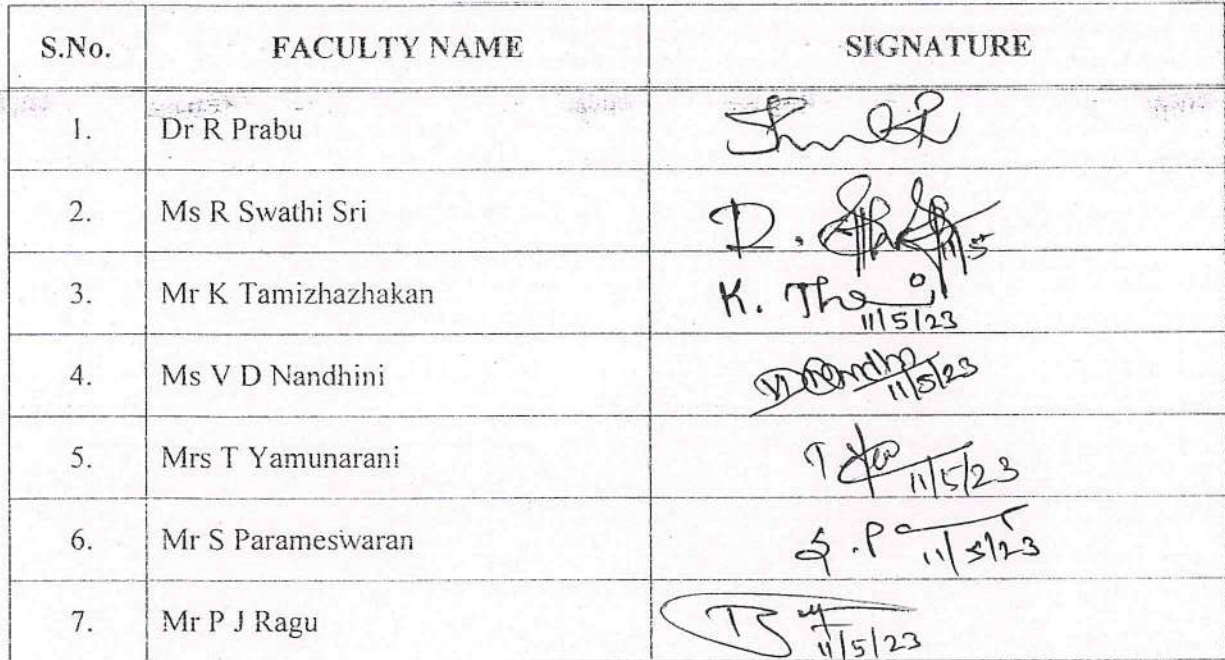 S.No. FACULTY NAME SIGNATURE
1. Dr R Prabu
2. Ms R Swathi Sri
3. Mr K Tamizhazhakan K. 11/5/23
4. Ms V D Nandhini 11/5/23
5. Mrs T Yamunarani T 11/5/23
6. Mr S Parameswaran S.P 11/5/23
7. Mr P J Ragu 11/5/23